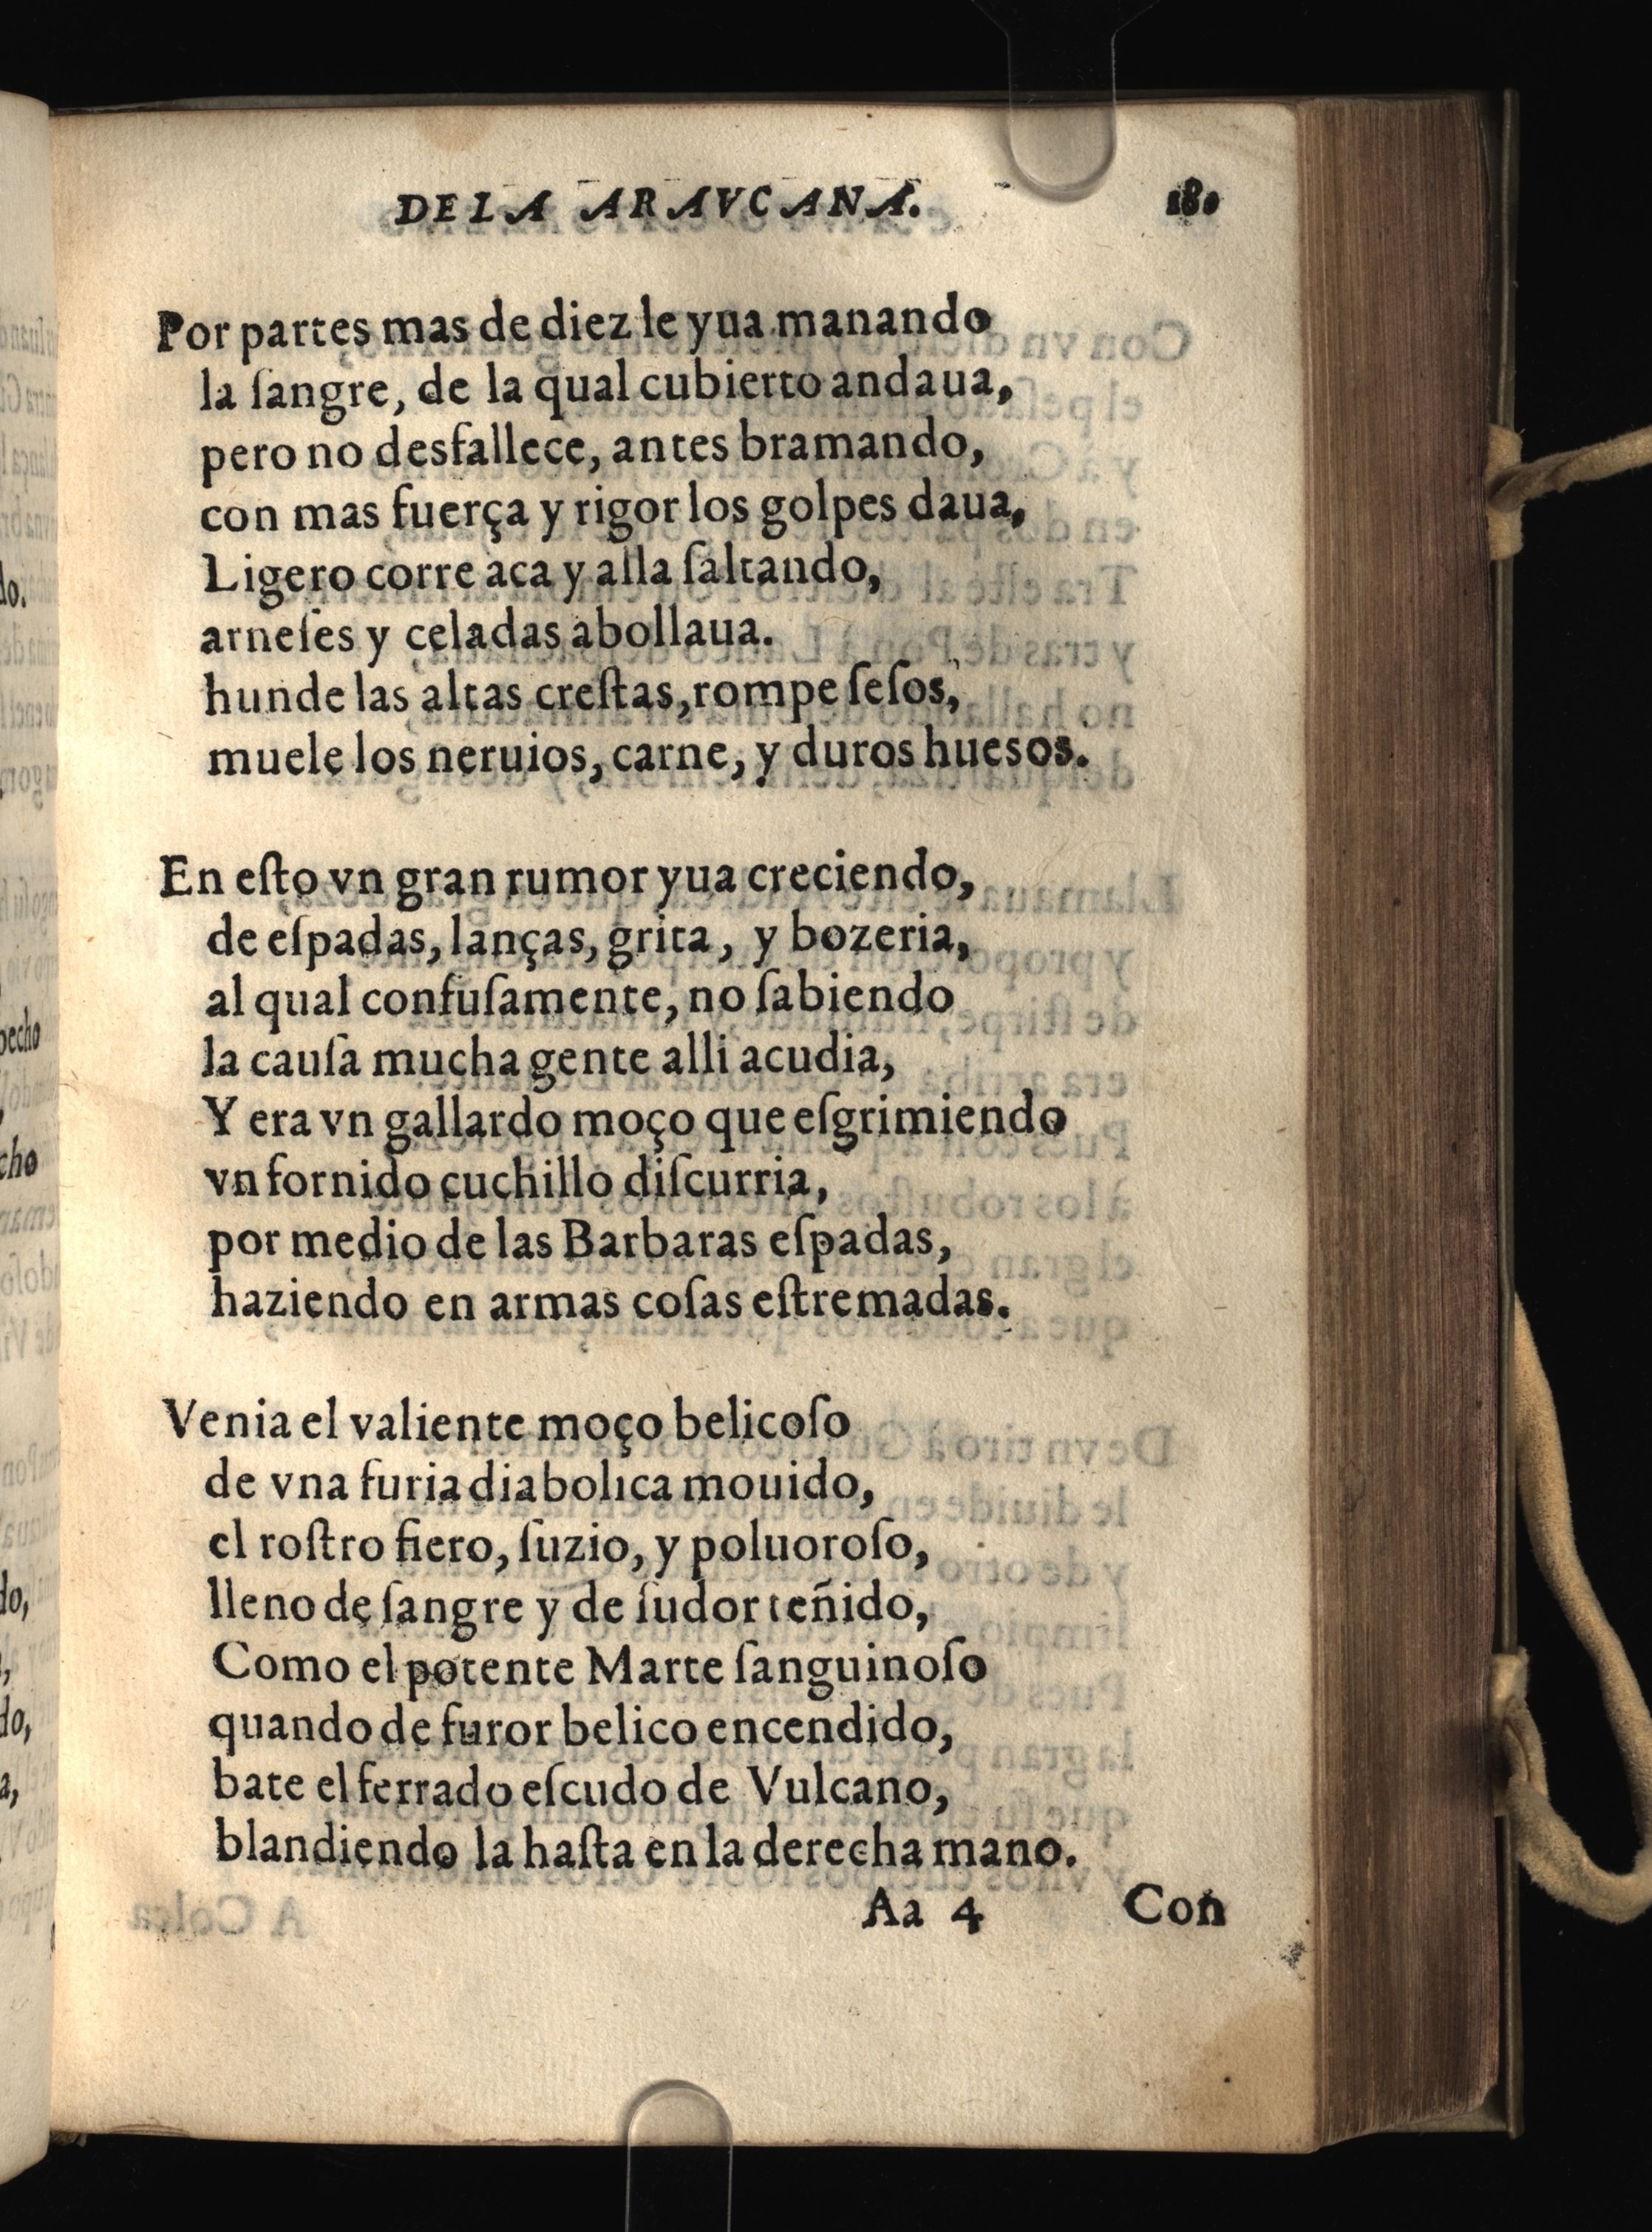 DE LA ARAVCANA. 180
Por partes mas de diez le yua manando
la ſangre, de la qual cubierto andaua,
pero no desfallece, antes bramando,
con mas fuerça y rigor los golpes daua,
Ligero corre aca y alla ſaltando,
arneſes y celadas abollaua.
hunde las altas creſtas, rompe ſeſos,
muele los neruios, carne, y duros huesos.
En eſto vn gran rumor yua creciendo,
de eſpadas, lanças, grita, y bozeria,
al qual confuſamente, no ſabiendo
la cauſa mucha gente alli acudia,
Y era vn gallardo moço que eſgrimiendo
vn fornido cuchillo diſcurria,
por medio de las Barbaras eſpadas,
haziendo en armas coſas eſtremadas.
Venia el valiente moço belicoſo
de vna furia diabolica mouido,
el roſtro fiero, ſuzio, y poluoroſo,
lleno de ſangre y de ſudor teñido,
Como el potente Marte ſanguinoſo
quando de furor belico encendido,
bate el ferrado eſcudo de Vulcano,
blandiendo la haſta en la derecha mano.
Aa 4 Con